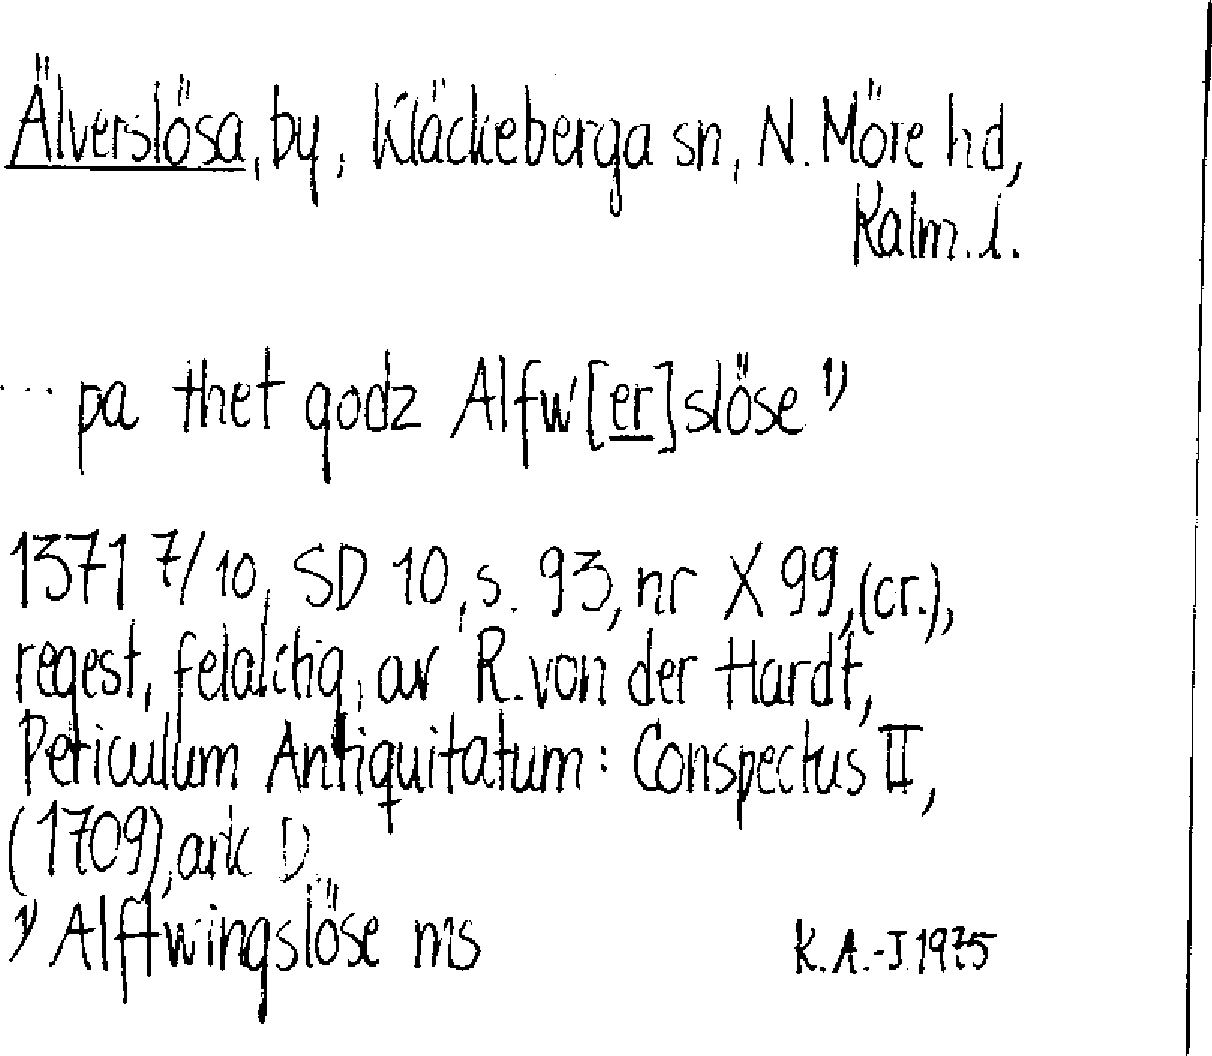 Älverslösa, by, Kläckeberga sn, N. Möre hd,
Kalm. l.
... pa thet godz Alfw[er]slöse 1)
1371 7/10, SD 10, s. 93, nr X 99, (cr.),
regest, felaktig, av R. von der Hardt,
Periculum Antiquitatum: Conspectus II,
(1709), ark D.
1) Alfftwingslöse ms
K. A.-J. 1975